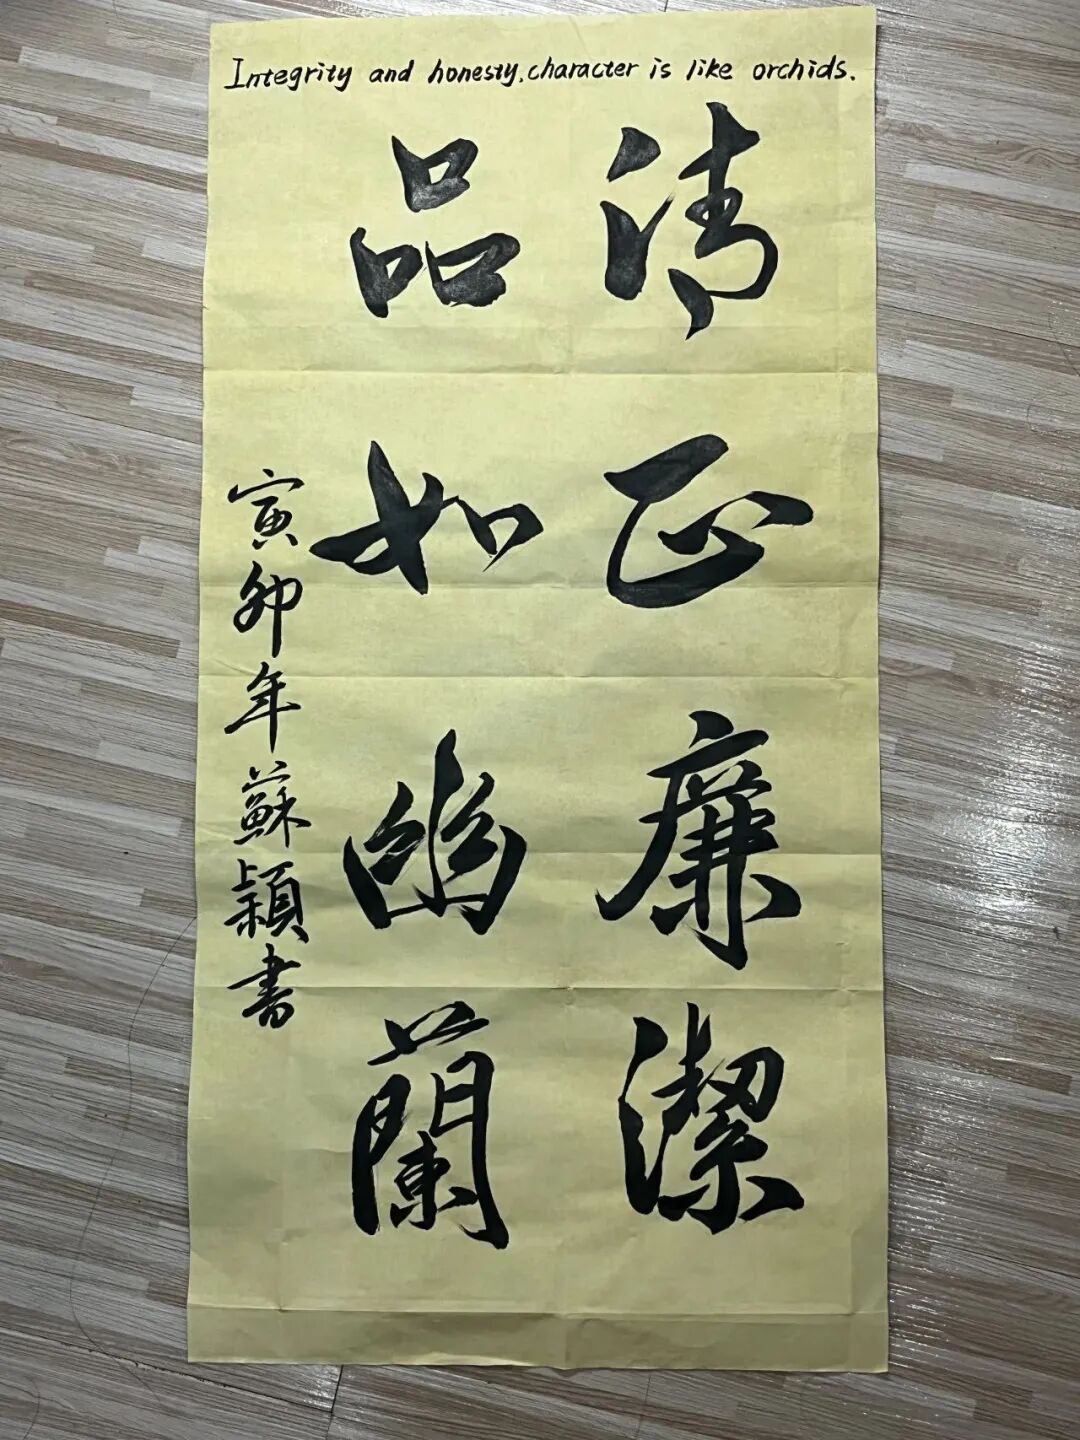 Integrity and honesty,character is like orchids.
清正廉潔
品如幽蘭
寅卯年蘇穎書